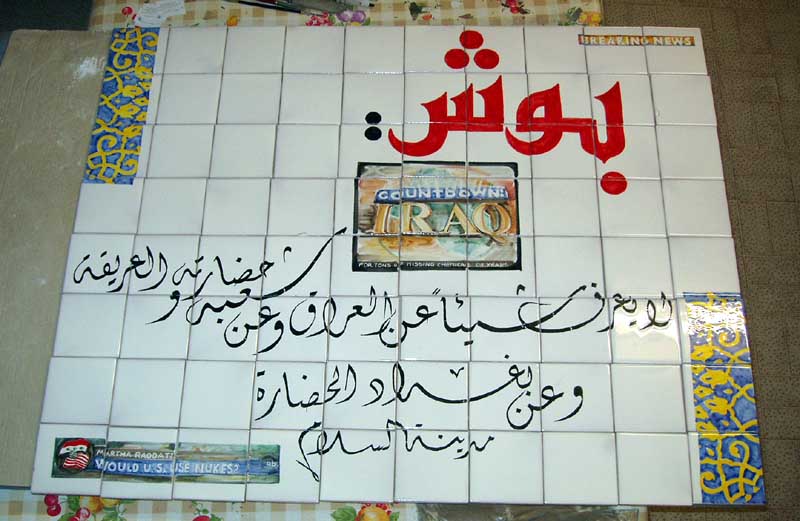 BREAKING NEWS
بوش:
COUNTDOWN:
IRAQ
MISSING CHEMICALS
لا يعرف شيئاً عن العراق وعن شعبه و حضارته العريقة
وعن بغداد الحضارة
مدينة السلام
MARTHA RADDATZ
WOULD U.S. USE NUKES?